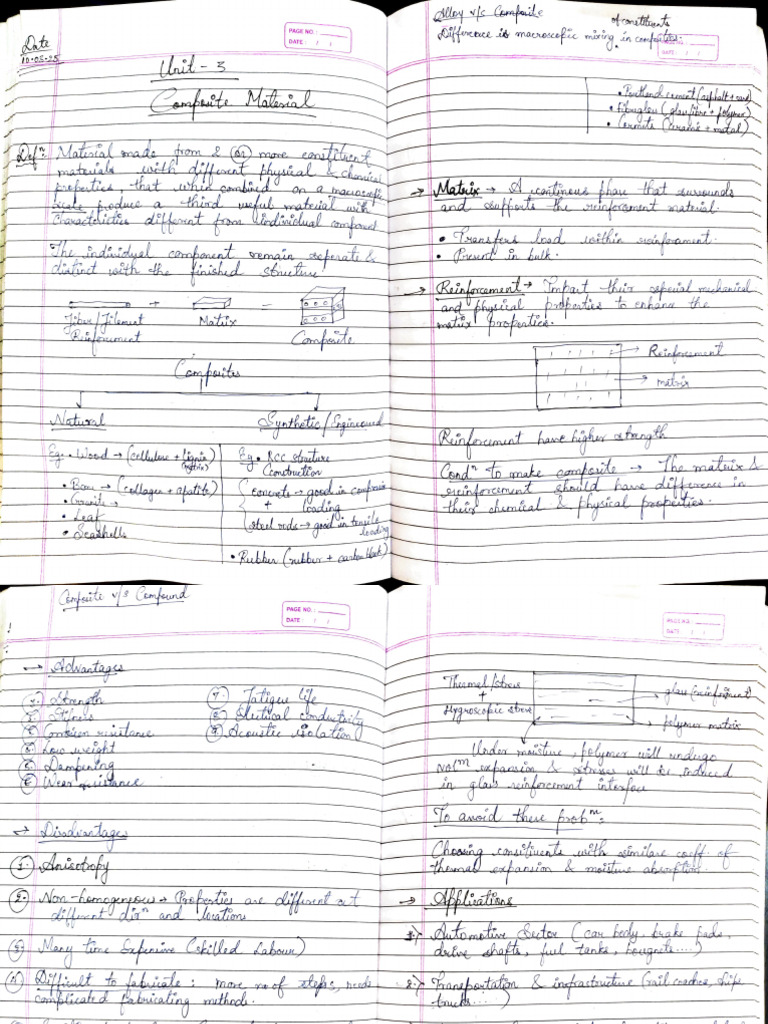 PAGE NO.:
DATE: / /
Date
10.03.25
Unit - 3
Composite Material
Defn: Material made from 2 or more constituent
materials with different physical & chemical
properties, that when combined on a macroscopic
scale produce a third useful material with
characteristics different from individual compound
The individual component remain seperate &
distinct with the finished structure
Fiber/Filement
Reinforcement
+
Matrix
=
Composite
Composites
Natural
Eg. • Wood → (cellulose + lignin)
(matrix)
• Bone → (collagen + apatite)
• Granite →
• Leaf
• Seashells
Synthetic/Engineered
Eg. • RCC structure
Construction
concrete → good in compression
+ loading
steel rods → good in tensile
loading
• Rubber (rubber + carbon black)
Alloy v/s Composite
of constituents
Difference is macroscopic mixing in composites.
DATE: / /
• Portland cement (asphalt + sand)
• Fibreglass (glass fibre + polymer)
• Cermets (ceramic + metal)
→ Matrix → A continous phase that surrounds
and supports the reinforcement material.
• Transfers load within reinforcement.
• Present in bulk.
→ Reinforcement → Impart their special mechanical
and physical properties to enhance the
matrix properties.
→ Reinforcement
→ matrix
Reinforcement have higher strength
Condn to make composite → The matrix &
reinforcement should have difference in
their chemical & physical properties.
Composite v/s Compound
PAGE NO.:
DATE: / /
→ Advantages
1. Strength
2. Stifness
3. Corrosion resistance
4. Low weight
5. Dampening
6. Wear resistance
7. Fatigue life
8. Electrical conductivity
9. Acoustic isolation
→ Disadvantages
1. Anisotropy
2. Non-homogenous → Properties are different at
different dirn and locations
3. Many time Expensive (skilled Labour)
4. Difficult to fabricate: more no of steps, needs
complicated fabricating methods.
PAGE NO.:
DATE: / /
Thermal stress
+
Hygroscopic stress
→ glass (reinforcement)
→ polymer matrix
Under moisture, polymer will undergo
volm expansion & stresses will be induced
in glass reinforcement interface
To avoid these probm:
Choosing constituents with similare coeff of
thermal expansion & moisture absorption.
→ Applications
1.) Automotive Sector (car body, brake pads,
drive shafts, fuel tanks, ....)
2.) Transportation & infrastructure (rail coaches, ships
trucks....)